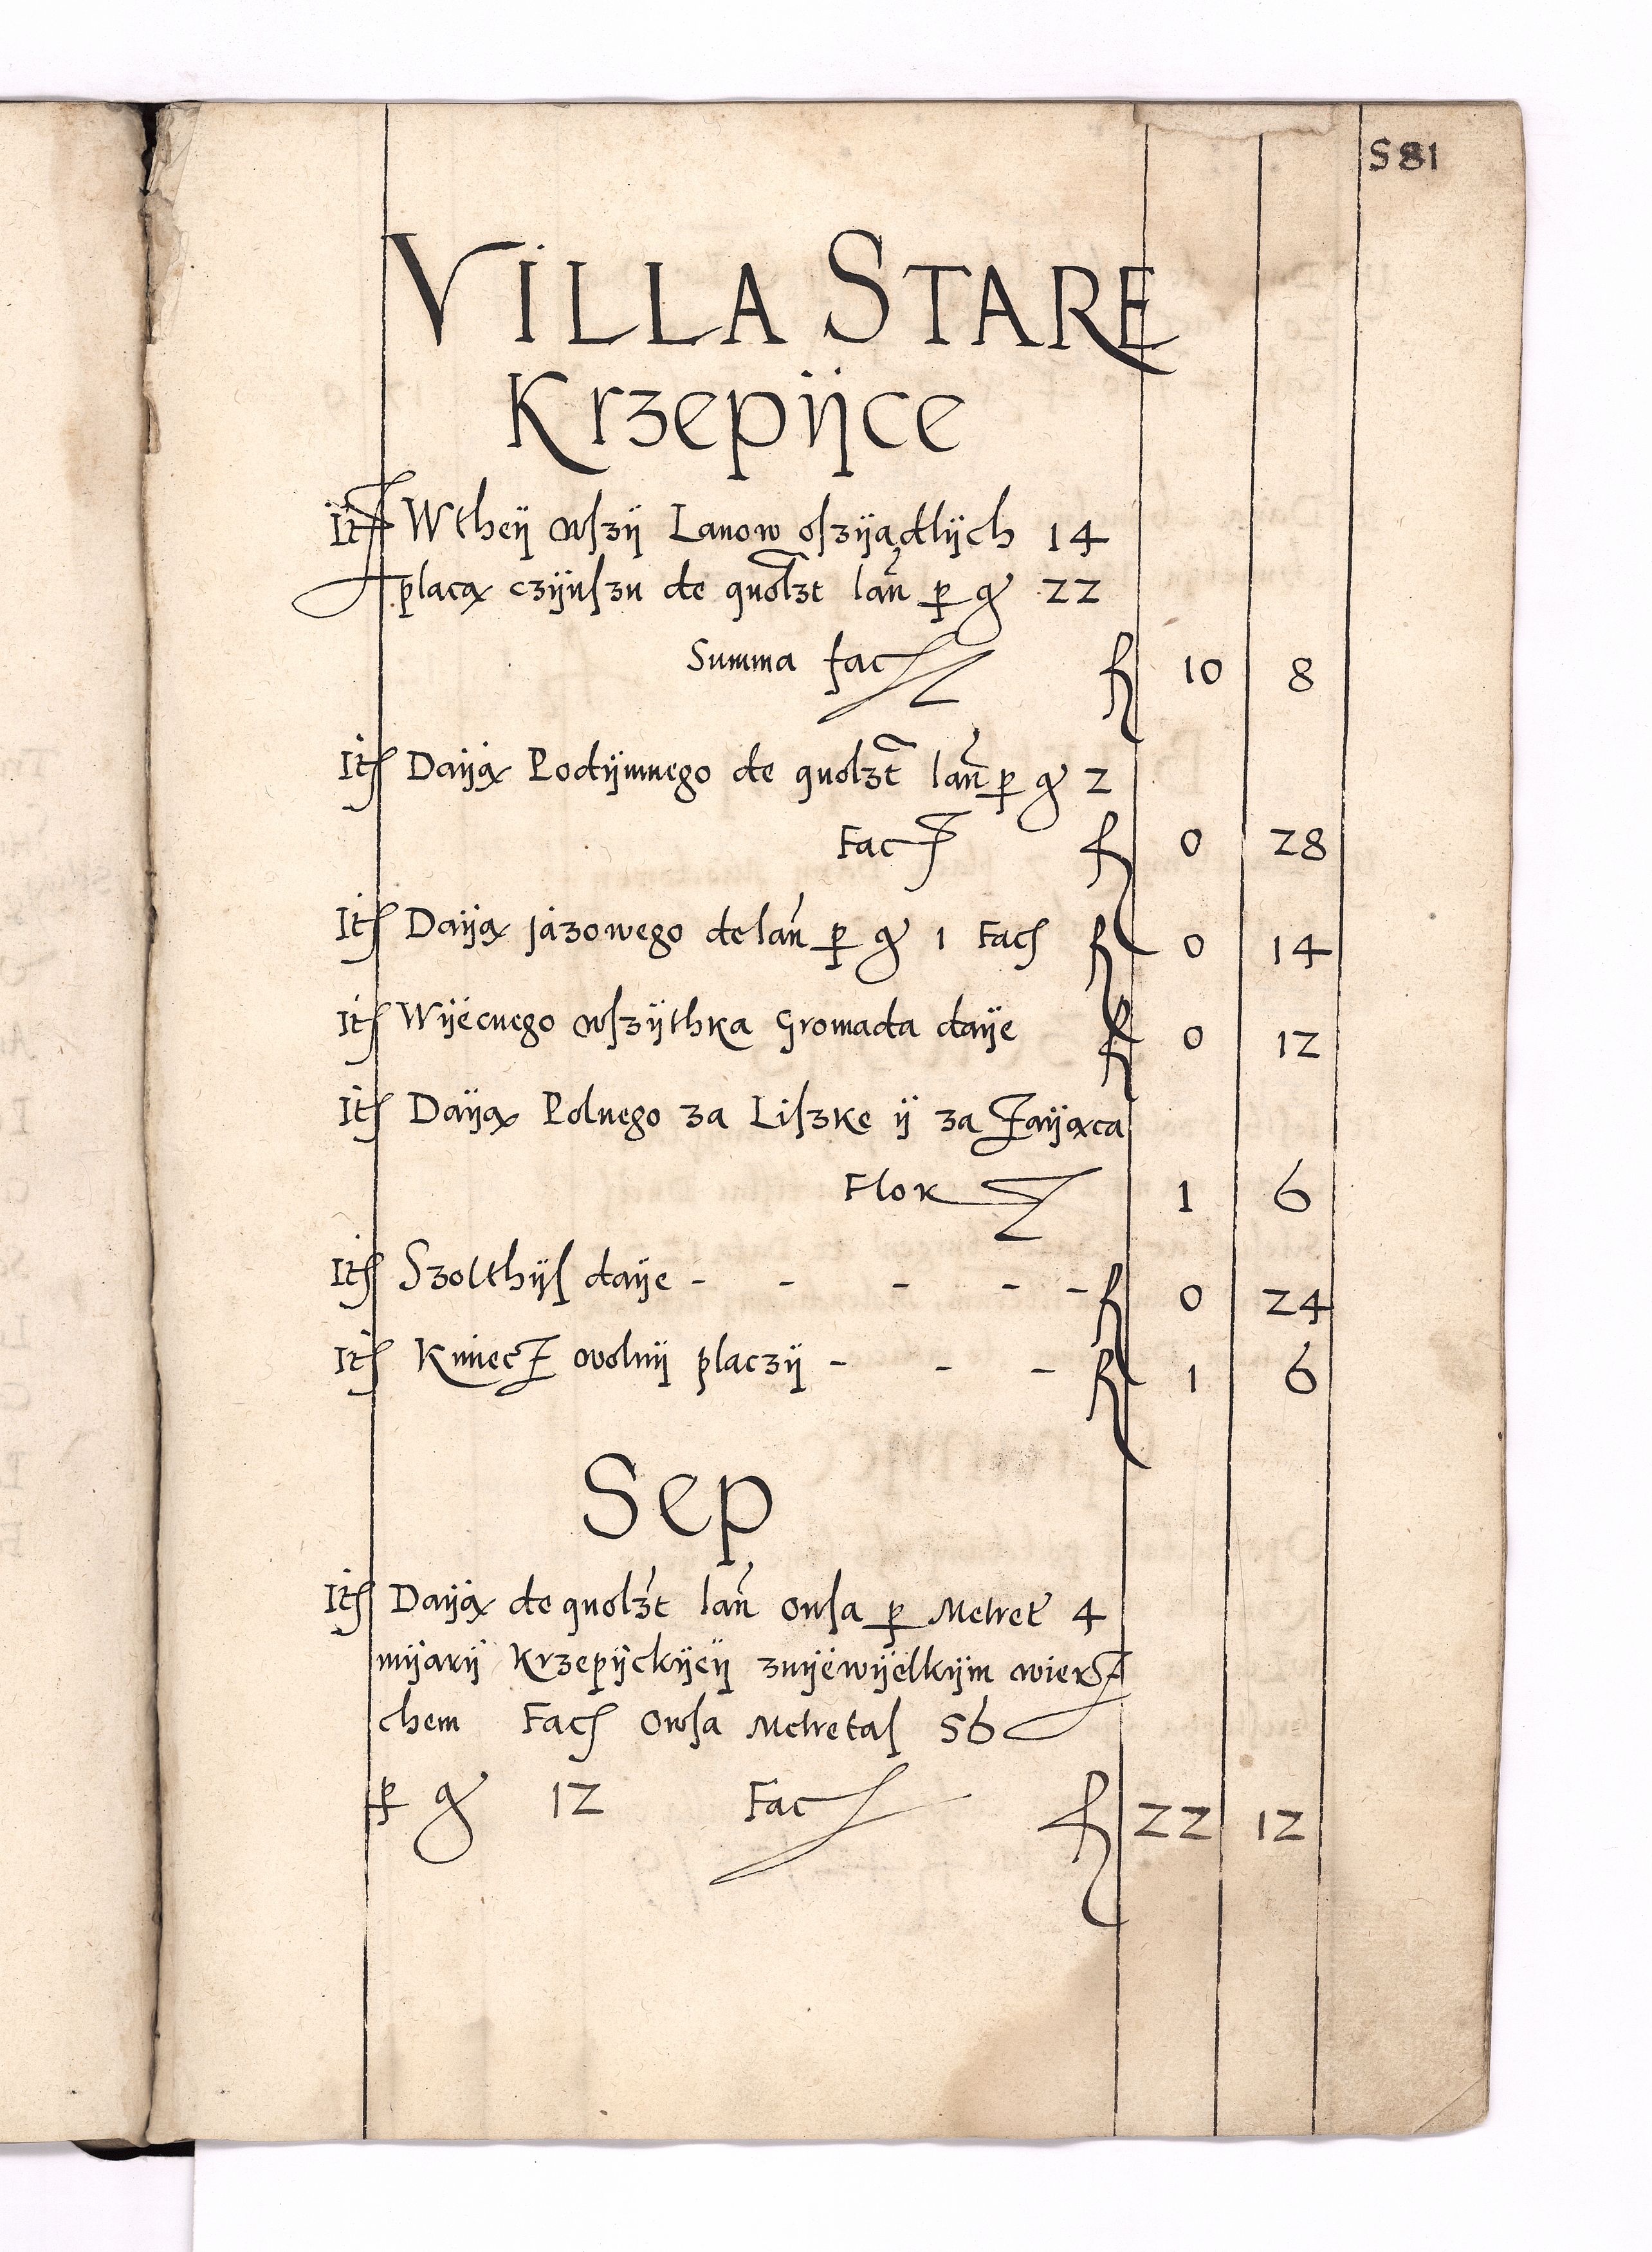 581
VILLA STARE
Krzepijce
It Wtheij wszij Lanow oszijadlijch 14
placą czijnszu de quolzt lan p gr 22
Summa fac f 10 8
It Daiją Podijmnego de quolzt lan p gr 2
Fact f 0 28
It Daiją jazowego de lan p gr 1 Fact f 0 14
It Wijecnego wszijthka Gromada daije f 0 12
It Daiją Polnego za Liszke ij za Zaijąca
Flor 1 6
It Szolthijs daije - - - - - f 0 24
It Kmiecz wolnij placzij - - - f 1 6
Sep
It Daiją de quolzt lan owsa p Metret 4
mijarij Krzepijckijeij znijewijelkijm wierz
chem Fact Owsa Metretas 56
p gr 12 Fac f 22 12